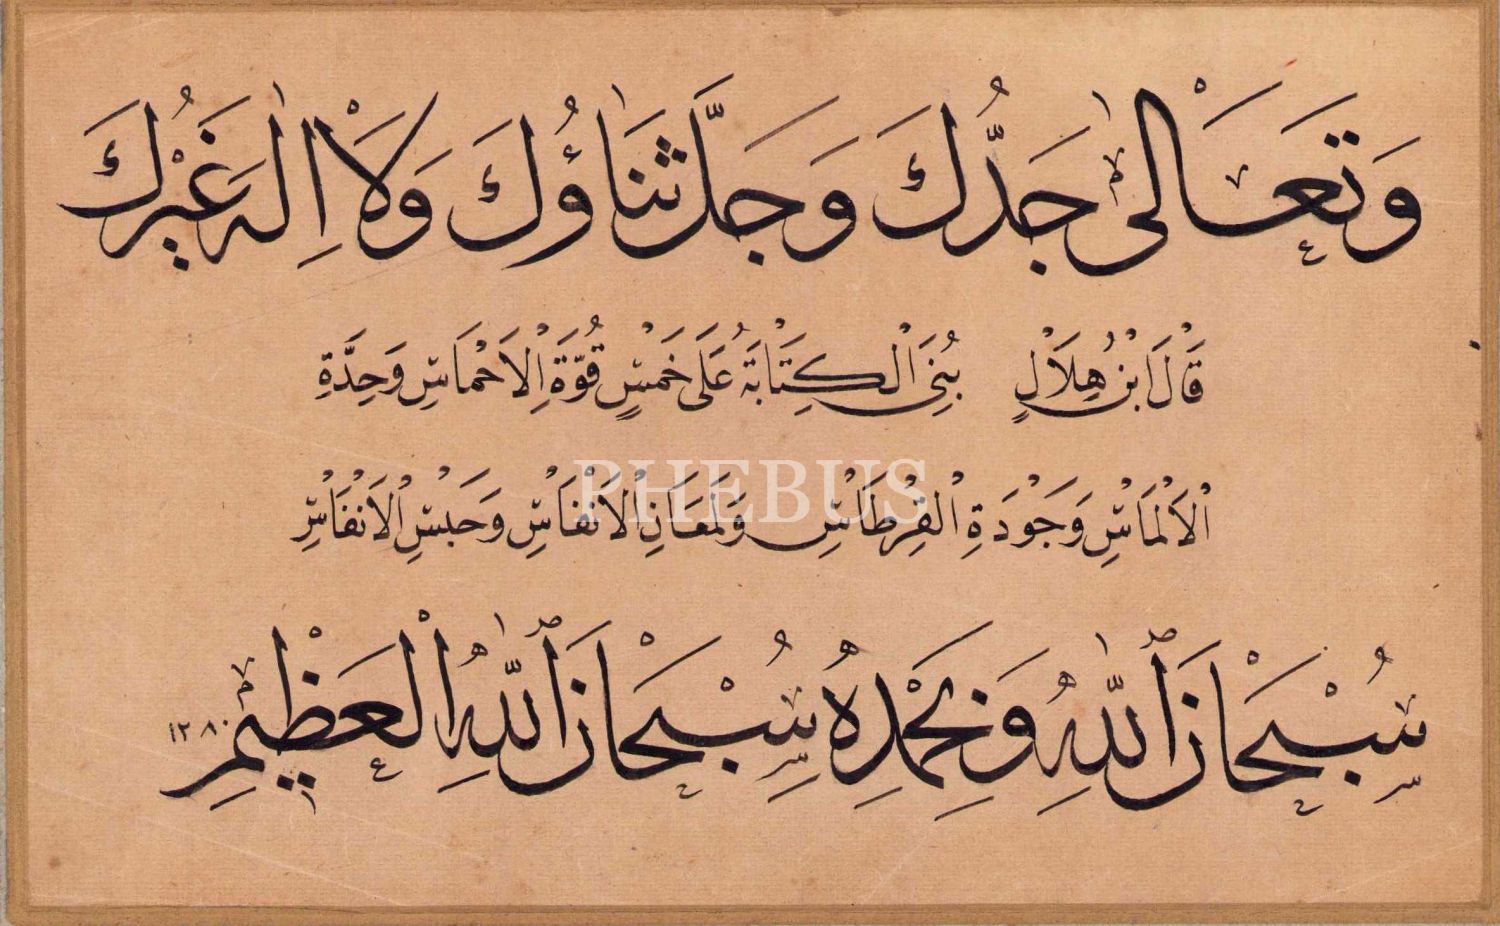 وَتَعَالٰى جَدُّكَ وَجَلَّ ثَنَاؤُكَ وَلَا اِلٰهَ غَيْرُكَ
قَالَ ابْنُ هِلَالٍ بُنِيَ الْكِتَابَةُ عَلَى خَمْسٍ قُوَّةِ الْاَحْمَاسِ وَحِدَّةِ
الْاَلْمَاسِ وَجَوْدَةِ الْقِرْطَاسِ وَلَمَعَانِ الْاَنْفَاسِ وَحَبْسِ الْاَنْفَاسِ
PHEBUS
سُبْحَانَ ٱللّٰهِ وَبِحَمْدِهِ سُبْحَانَ ٱللّٰهِ الْعَظِيمِ ١٢٨٠